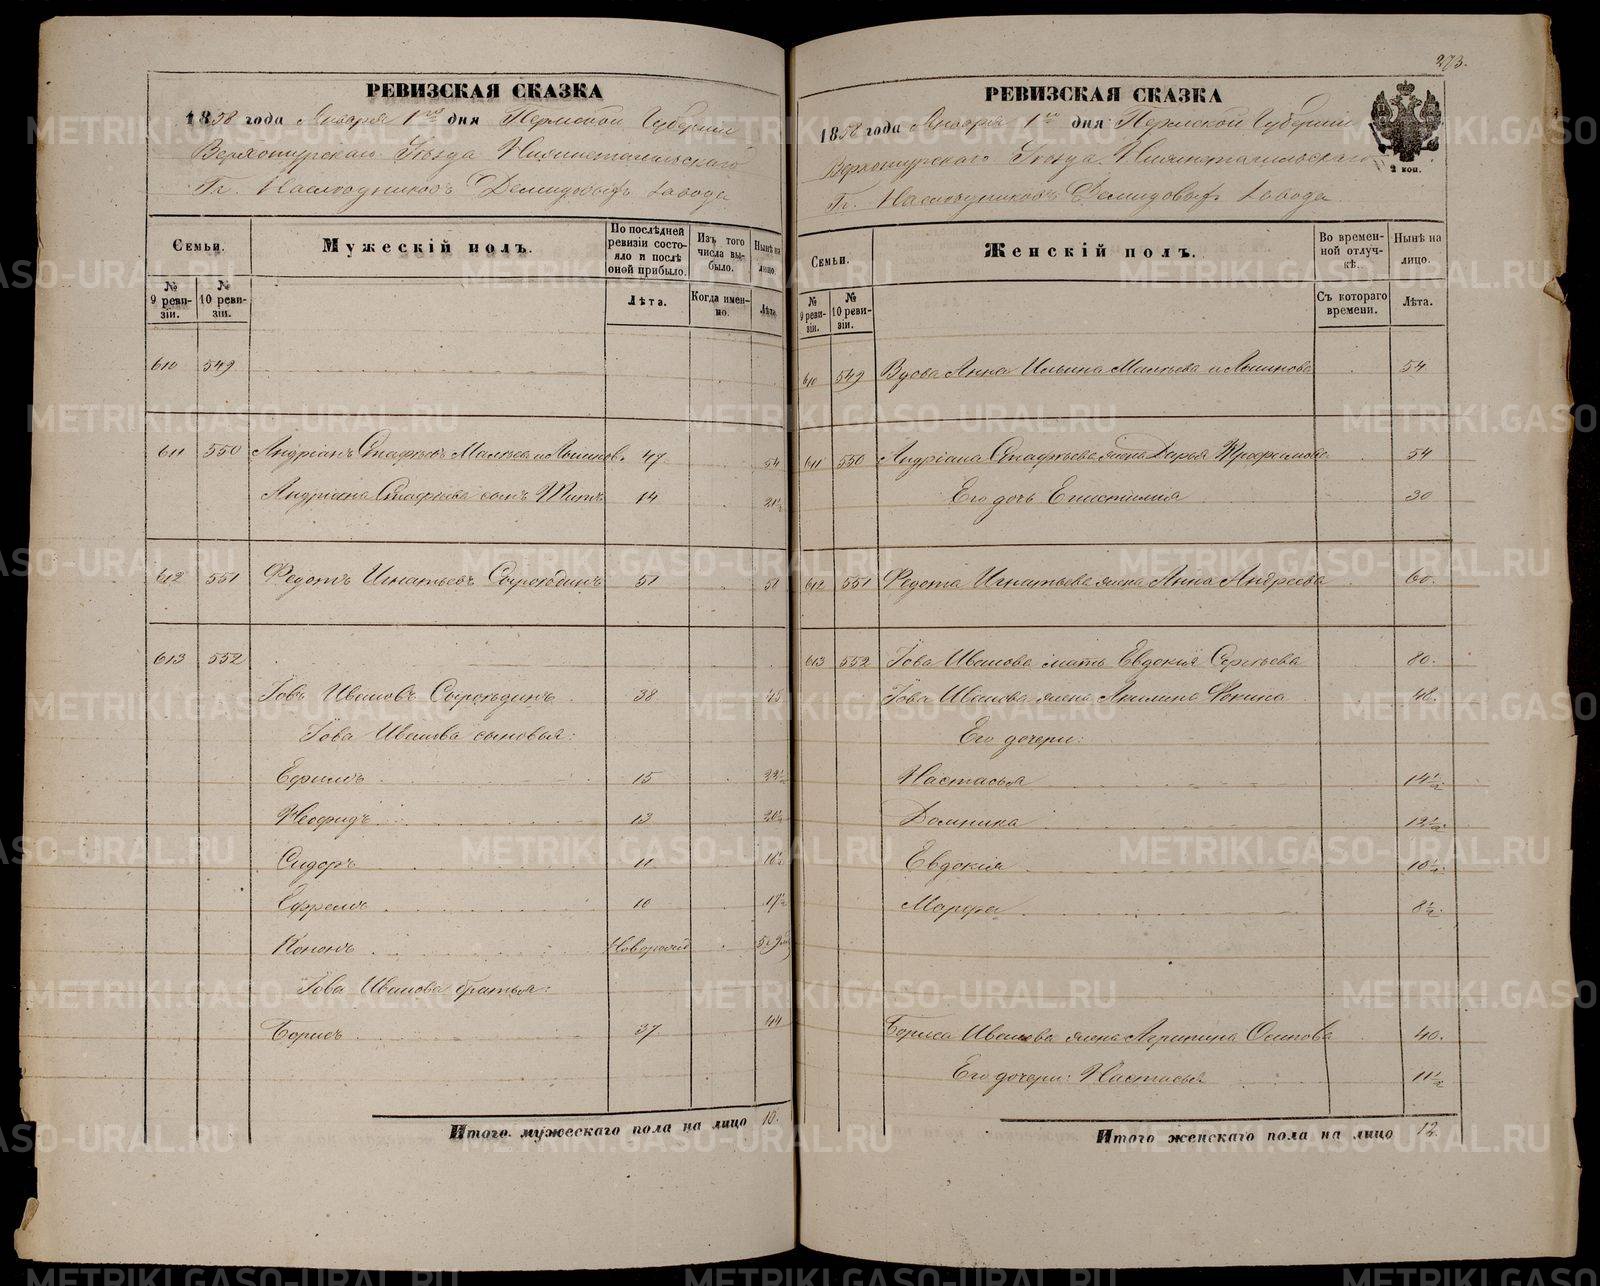 273.
РЕВИЗСКАЯ СКАЗКА
1858 года Января 1го дня Пермской Губернии
Верхотурскаго Уезда Нижнетагильскаго
Гг. Наследниковъ Демидовыхъ Завода
Семьи.
Мужескiй полъ.
По послѣдней ревизiи состояло и послѣ оной прибыло.
Изъ того числа выбыло.
Нынѣ на лицо.
№ 9 ревизiи.
№ 10 ревизiи.
Лѣта.
Когда именно.
Лѣта.
610 549
611 550 Андрiанъ 47 54
Андрiана сынъ Титъ 14 21½
612 551 Федотъ Игнатьевъ Сыроѣдинъ 51 51
613 552
Iовъ Ивановъ Сыроѣдинъ 38 45
Iова Иванова сыновья:
Ефимъ 15 22½
Неофидъ 13 20½
Сидоръ 11 18½
Ефремъ 10 17½
Кононъ 5
Iова Иванова братья:
Борисъ 37 44
Итого мужескаго пола на лицо 10.
РЕВИЗСКАЯ СКАЗКА
1858 года Января 1го дня Пермской Губернiи
Верхотурскаго Уезда Нижнетагильскаго
Гг. Наследниковъ Демидовыхъ Завода
2 коп.
Семьи.
Женскiй полъ.
Во временной отлучкѣ.
Нынѣ на лицо.
№ 9 ревизiи.
№ 10 ревизiи.
Съ котораго времени.
Лѣта.
610 549 Вдова Анна Ильина 54
611 550 Андрiана жена Дарья Трофимова 54
Его дочь Епистимiя 30
612 551 Федота Игнатьева жена Анна Андреева 60.
613 552 Iова Иванова мать Евдокiя Сергѣева 80.
Iова Иванова жена Акилина Фокина 48.
Его дочери:
Настасья 14½
Домника 12½
Евдокiя 10½
Марфа 8½
Бориса Иванова жена Агрипина Осипова 40.
Его дочери: Настасья 11½
Итого женскаго пола на лицо 12.
METRIKI.GASO-URAL.RU